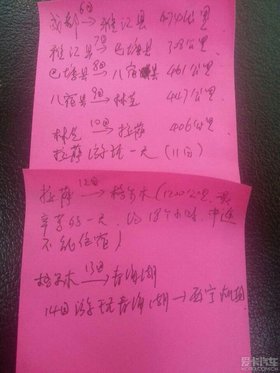 成都 6日→ 雅江县 474公里
雅江县 7日→ 巴塘县 308公里
巴塘县 8日→ 八宿县 461公里
八宿县 9日→ 林芝 447公里
林芝 10日→ 拉萨 406公里
拉萨游玩一天(11日)
拉萨 12日→ 格尔木(1200公里,最
辛苦的一天,约18个小时,中途
不能住宿)
格尔木 13日→ 青海湖
14日游玩青海湖→西宁机场
爱卡汽车